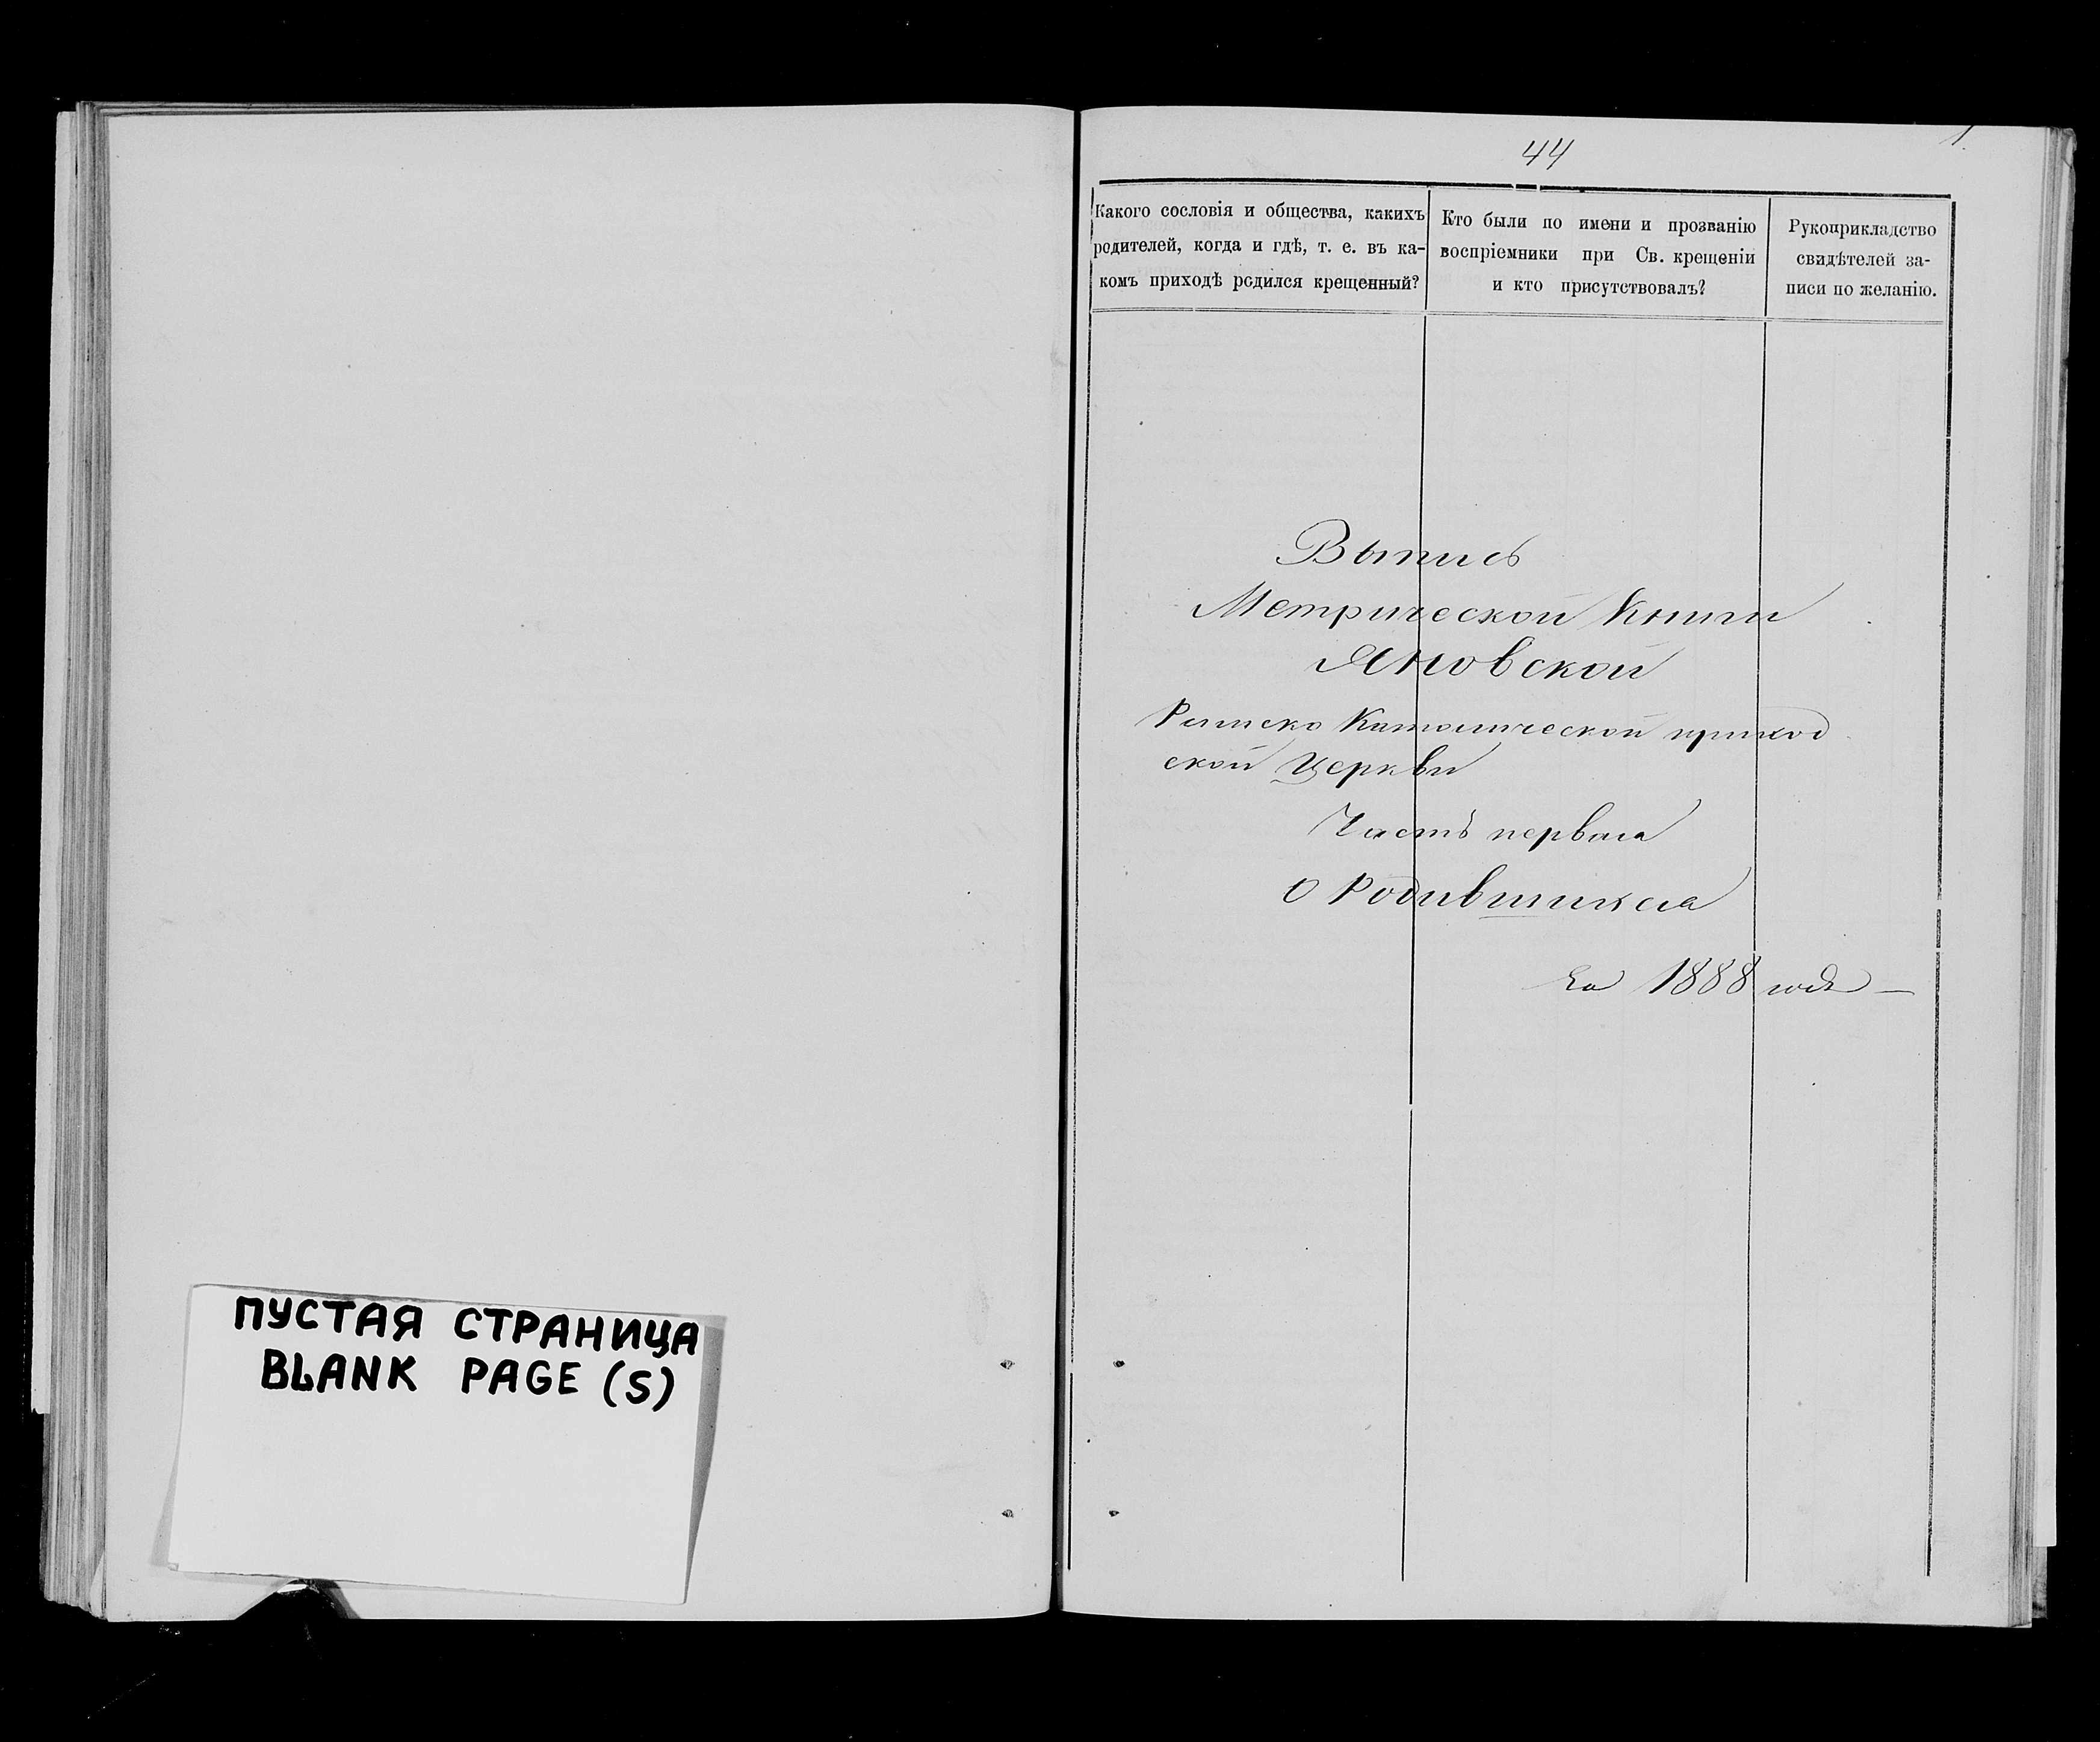 ПУСТАЯ СТРАНИЦА
BLANK PAGE (S)
44
1.
Какого сословія и общества, какихъ
родителей, когда и гдѣ, т. е. въ ка-
комъ приходѣ родился крещенный?
Кто были по имени и прозванію
воспріемники при Св. крещеніи
и кто присутствовалъ?
Рукоприкладство
свидѣтелей за-
писи по желанію.
Выпись
Метрической Книги
Яновской
Римско Католической приход
ской Церкви
Часть первая
О Родившихся
За 1888 годъ —